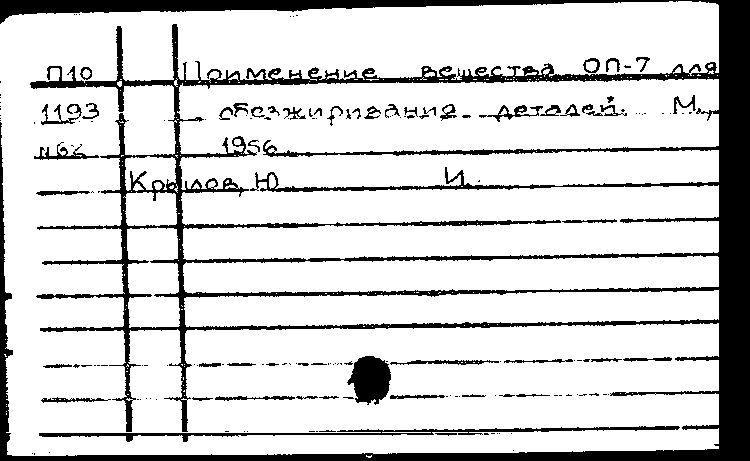 П10 Применение вещества ОП-7 для
1193 обезжиривания деталей. М.,
1956
Крылов, Ю И.